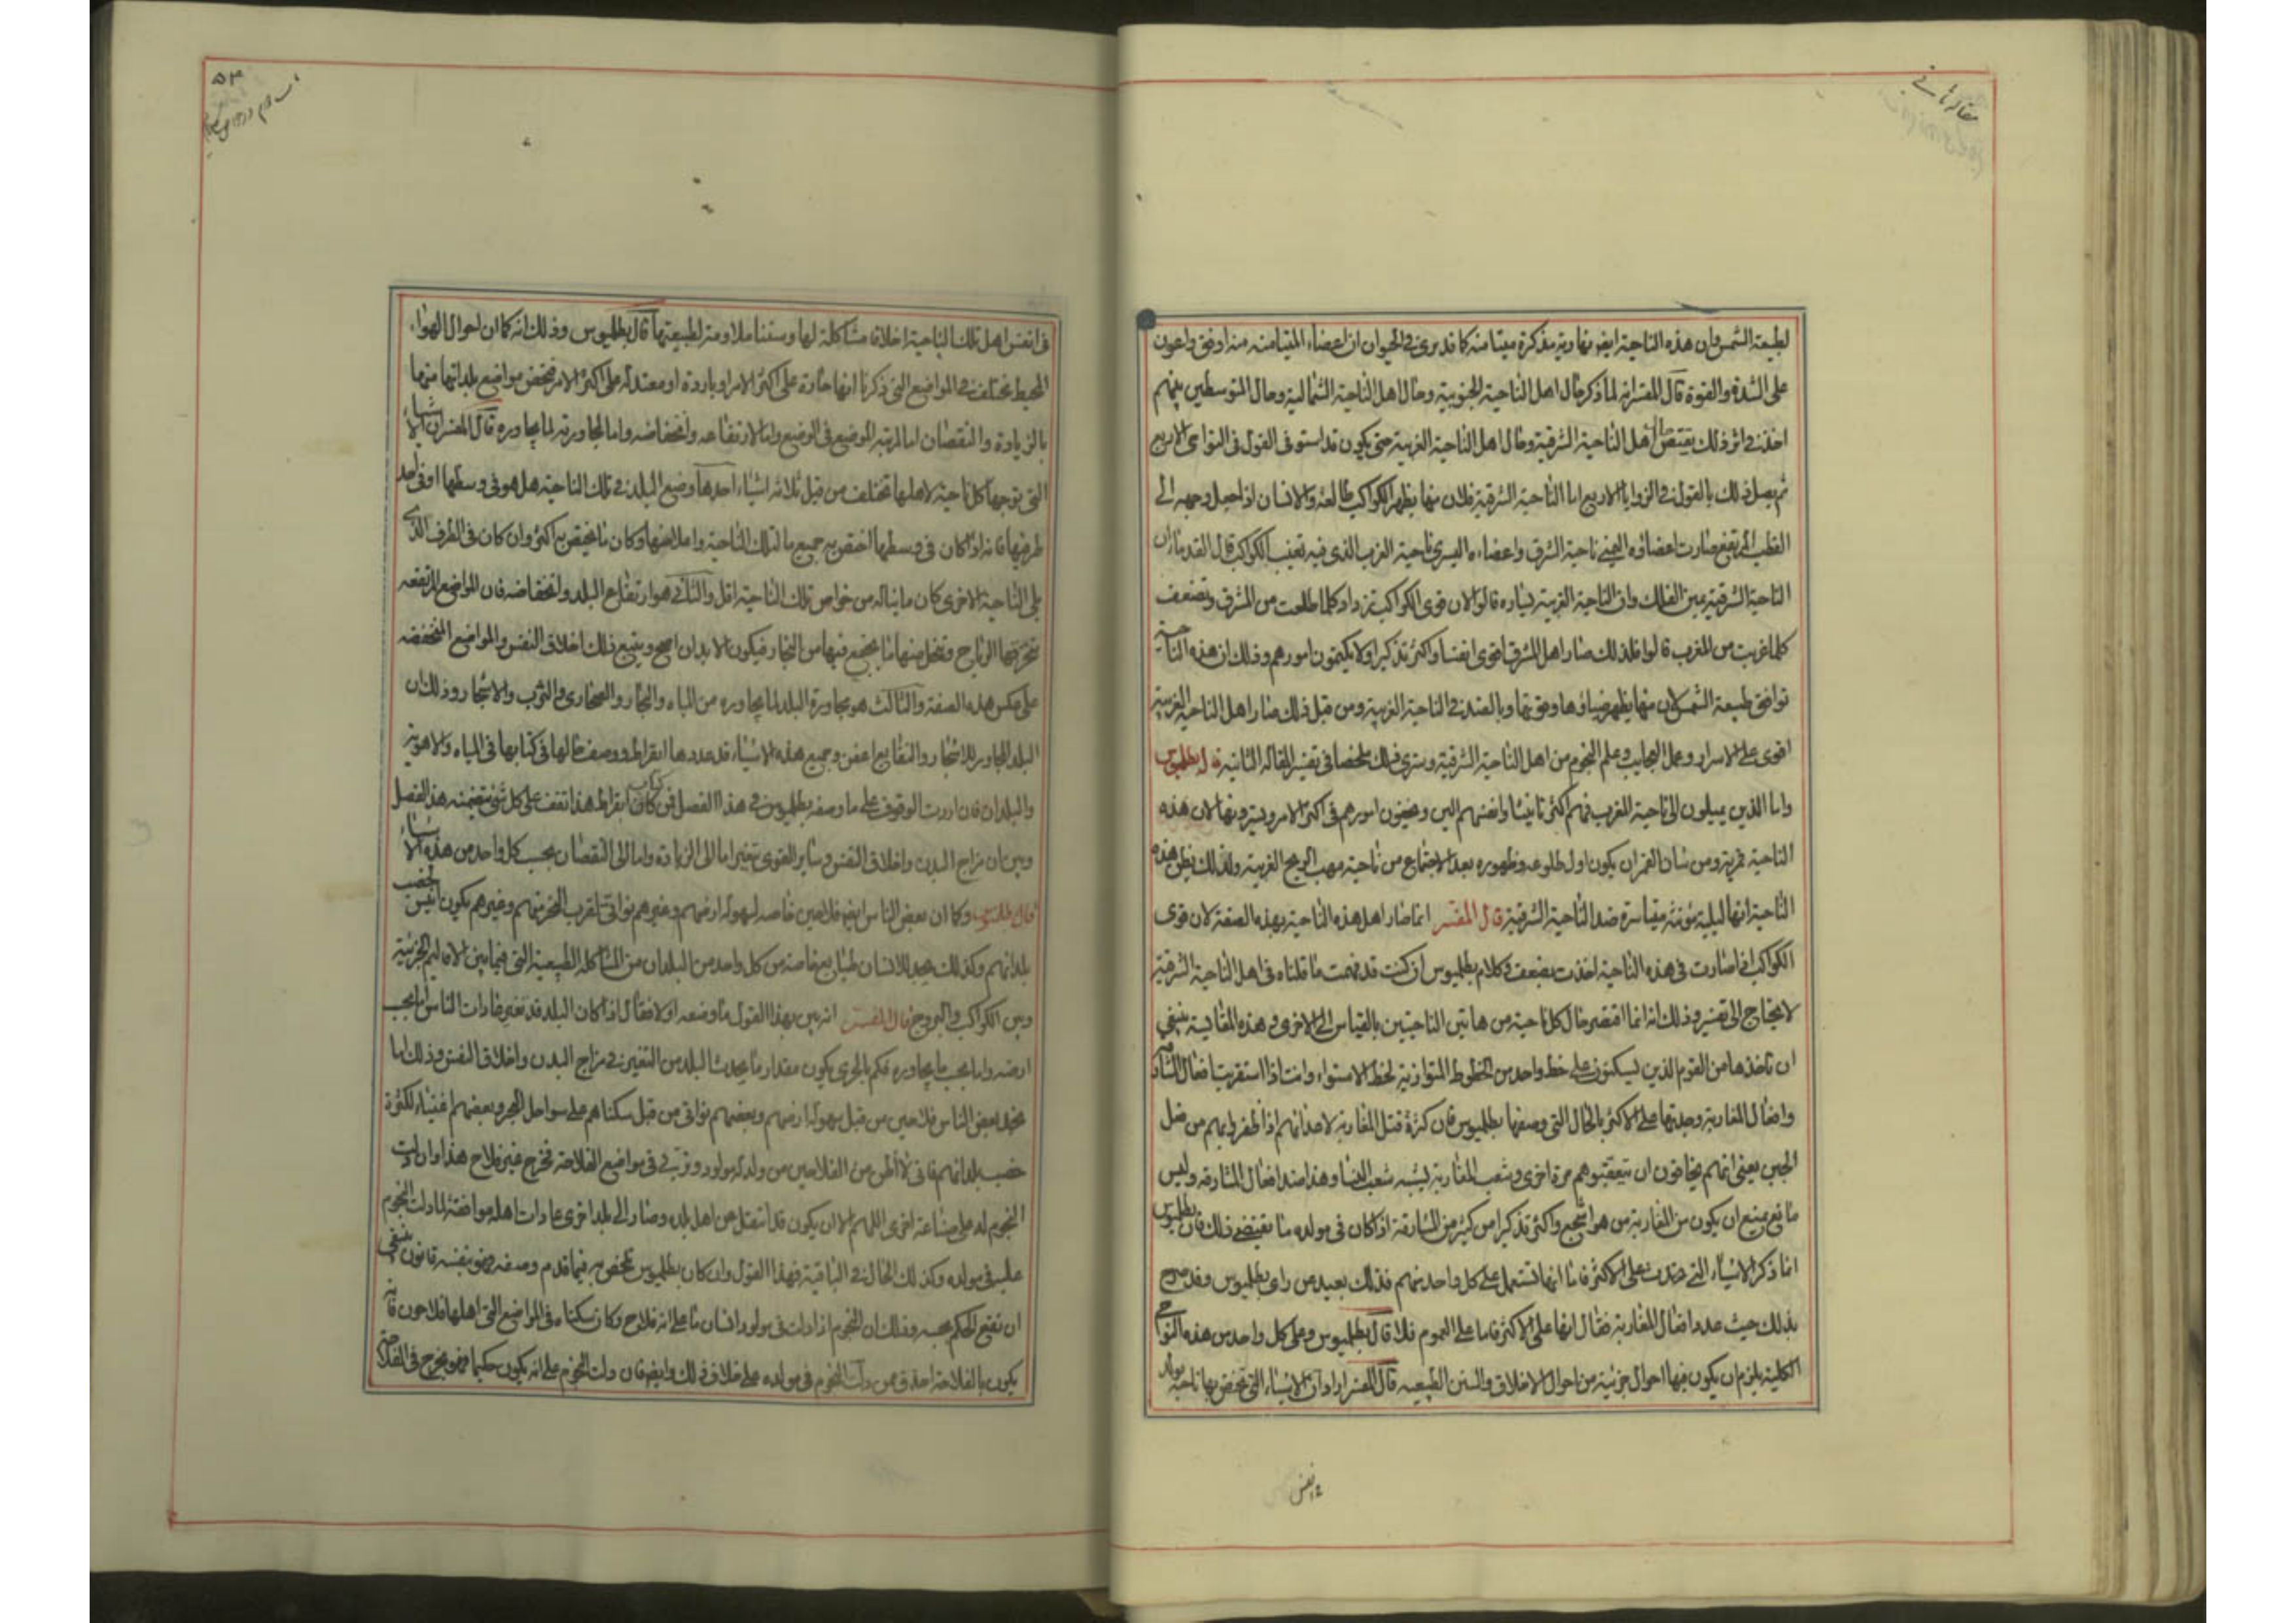 مقاله ثانی
لطبیعة الشمس وان هذه الناحیة ایضا نهاریة مذکرة میتامنه کما قد یری فی الحیوان ان اعضاء المتیامنه منه اوفق واعون
علی الشدة والقوة قال المفسر انه لما ذکر حال اهل الناحیة الجنوبیة وحال اهل الناحیة الشمالیة وحال المتوسطین بینهم
اخذ فی اثر ذلک یقتص اهل الناحیة الشرقیة وحال اهل الناحیة الغربیة حتی یکون قد استوفی القول فی النواحی الاربع
ثم یصل ذلک بالقول فی الزوایا الاربع اما الناحیة الشرقیة فلان منها یظهر الکواکب طالعة والانسان اذا جعل وجهه الی
القطب المرتفع صارت اعضاؤه الیمنی ناحیة الشرق واعضاءه الیسری ناحیة الغرب الذی فیه تغیب الکواکب قال القدماء ان
الناحیة الشرقیة یمین الفلک وان الناحیة الغربیة یساره قالوا لان قوی الکواکب تزداد کلما طلعت من المشرق وتضعف
کلما غربت من المغرب قالوا فلذلک صار اهل المشرق اقوی انفسا واکثر تذکیرا ولا یکتمون امورهم وذلک ان هذه الناحیة
توافق طبیعة الشمس لان منها یظهر ضیاؤها وقوتها وبالضد فی الناحیة الغربیة ومن قبل ذلک صار اهل الناحیة الغربیة
اقوی علی الاسرار وعمل العجایب وعلم النجوم من اهل الناحیة الشرقیة وستری ذلک ملخصا فی تفسیر المقالة الثانیة قال بطلمیوس
واما الذین یمیلون الی ناحیة المغرب فهم اکثر تانیثا وانفسهم الین ویخفون امورهم فی اکثر الامر ویسترونها لان هذه
الناحیة قمریة ومن شان القمر ان یکون اول طلوعه وظهوره بعد الاجتماع من ناحیة مهب الریح الغربیة ولذلک یظن هذه
الناحیة انها لیلیة مؤنثة متیاسرة ضد الناحیة الشرقیة قال المفسر انما صار اهل هذه الناحیة بهذه الصفة لان قوی
الکواکب اذا صارت فی هذه الناحیة اخذت یضعف وکلام بطلمیوس ان کنت قد فهمت ما قلناه فی اهل الناحیة الشرقیة
لا یحتاج الی تفسیر وذلک انه انما اقتصر حال کل ناحیة من هاتین الناحیتین بالقیاس الی الاخری وهذه المقایسة ینبغی
ان تاخذها من القوم الذین یسکنون علی خط واحد من الخطوط المتوازیة لخط الاستواء وانت اذا استقریت افعال المشارقة
وافعال المغاربة وجدتها علی الاکثر بالحال التی وصفها بطلمیوس فان کثرة قتل المغاربة لاعدائهم اذا ظفروا بهم من قبل
الجبن یعنی انهم یخافون ان یتعقبوهم مرة اخری وشعب المغاربة یشبه شعب النساء وهذا ضد افعال المشارقة ولیس
مانع یمنع ان یکون من المغاربة من هو اشجع واکثر تذکیرا من کثیر من المشارقة اذا کان فی مولده ما یقتضی ذلک فان بطلمیوس
انما ذکر الاشیاء التی حدثت علی الاکثر فاما انها تستعمل علی کل واحد منهم فذلک بعید من رای بطلمیوس وقد صرح
بذلک حیث عدد افعال المغاربة فقال انها علی الاکثر فاما علی العموم فلا قال بطلمیوس وعلی کل واحد من هذه النواحی
الکلیة یلزم ان یکون فیها احوال جزئیة من احوال الاخلاق والسنن الطبیعیة قال المفسر اراد ان الاشیاء التی تختص بها ناحیة یولد
فی انفس
۵۳
فی انفس اهل تلک الناحیة اخلاقا مشاکلة لها وسننا ملاومة لطبیعتها قال بطلمیوس وذلک انه کما ان احوال الهواء
المحیط تختلف فی المواضع التی ذکرنا انها حارة علی اکثر الامر او باردة او معتدلة علی اکثر الامر تختص مواضع بلدانها منها
بالزیادة والنقصان اما لمرتبة الموضع فی الوضع واما لارتفاعه وانخفاضه واما لمجاورته لما یجاوره قال المفسر ان الاشیاء
التی توجبها کل ناحیة لاهلها تختلف من قبل ثلاثة اشیاء احدها وضع البلد فی تلک الناحیة هل هو فی وسطها او فی احد
طرفیها فانه اذا کان فی وسطها اختص به جمیع ما لتلک الناحیة واعلاضها وکان ما یختص به اکثر وان کان فی الطرف الذی
یلی الناحیة الاخری کان ما یناله من خواص تلک الناحیة اقل والثانی هو ارتفاع البلد وانخفاضه فان المواضع المرتفعه
تخترقها الریاح وتحلل منها ما یجتمع فیها من البخار فیکون الابدان اصح ویتبع ذلک اخلاق النفس والمواضع المنخفضه
علی عکس هذه الصفة والثالث هو مجاورة البلد لما یجاوره من المیاه والبحار والصحاری والترب والاشجار وذلک ان
البلد المجاور للاشجار والنقایع اعفن وجمیع هذه الاشیاء قد عددها ابقراط ووصف حالها فی کتابها فی المیاه والاهویة
والبلدان فان اردت الوقوف علی ما وصفه بطلمیوس فی هذا الفصل فمن کتاب ابقراط هذا تقف علی کل شئ تتضمنه هذا الفصل
وبین ان مزاج البدن واخلاق النفس وسایر القوی تتغیر اما الی الزیادة واما الی النقصان بحسب کل واحد من هذه الاشیاء
قال بطلمیوس وکما ان بعض الناس ایضا فلاحین خاصة لسهولة ارضهم وغیرهم نواتی لقرب البحر منهم وغیرهم یکون انفس لخصب
بلدانهم وکذلک یجد للانسان طبایع خاصة من کل واحد من البلدان من المشاکلة الطبیعیة التی فیما بین الاقالیم الجزئیة
وبین الکواکب والبروج قال المفسر انه بین بهذا القول ما وضعه اولا فقال اذا کان البلد قد تغیر عادات الناس اما بحسب
ارضه واما بحسب ما یجاوره فکم بالحری یکون مقدار ما یحدث البلد من التغییر فی مزاج البدن واخلاق النفس وذلک انا
نجد بعض الناس فلاحین من قبل سهولة ارضهم وبعضهم نواتی من قبل سکناهم علی سواحل البحر وبعضهم اغنیاء لکثرة
خصب بلدانهم فانی لا اظن من الفلاحین من ولد له مولود وتربی فی مواضع الفلاحة تخرج غیر فلاح هذا وان دلت
النجوم له علی صناعة اخری اللهم الا ان یکون قد انتقل عن اهل بلده وصار الی بلد اخری عادات اهله موافقة لما دلت النجوم
علیه فی مولده وکذلک الحال فی الباقیة فهذا القول وان کان بطلمیوس تختص به فیما قدم وصفه فهو بنفسه قانون ینبغی
ان تقع الحکم بحسبه وذلک ان النجوم اذا دلت فی مولود انسان ما علی انه فلاح وکان سکناه فی المواضع التی اهلها فلاحون فانه
یکون بالفلاحة احذق ممن دلت النجوم فی مولده علی خلاف ذلک وایضا فان دلت النجوم علی انه یکون حکیما فهو یخرج فی الفلاحة حتی